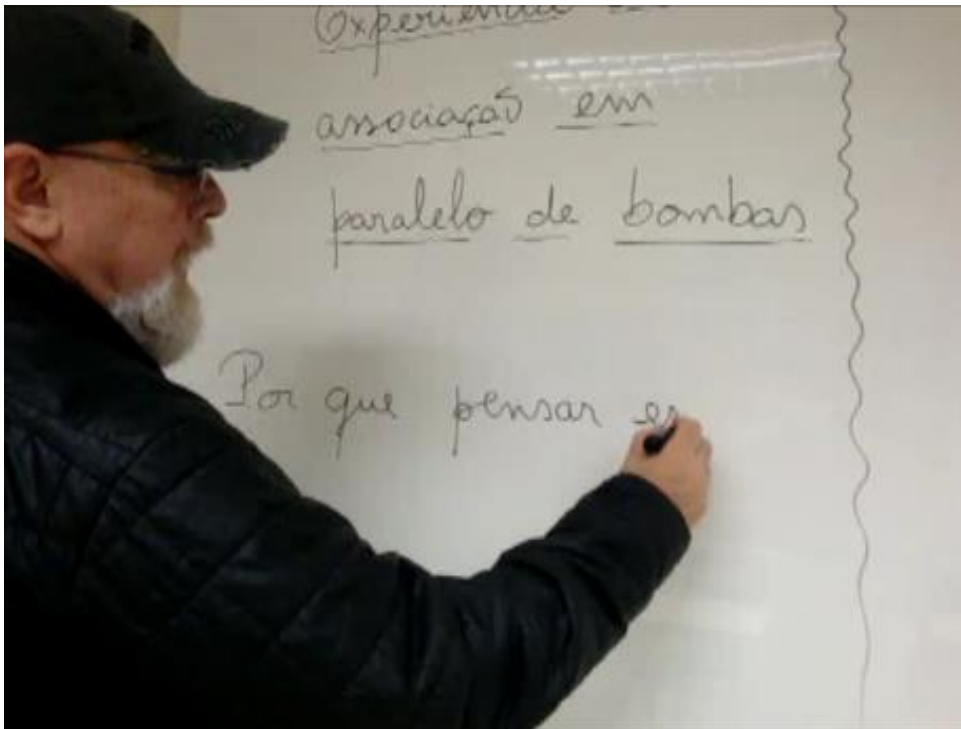 Experiência
associação em
paralelo de bombas
Por que pensar